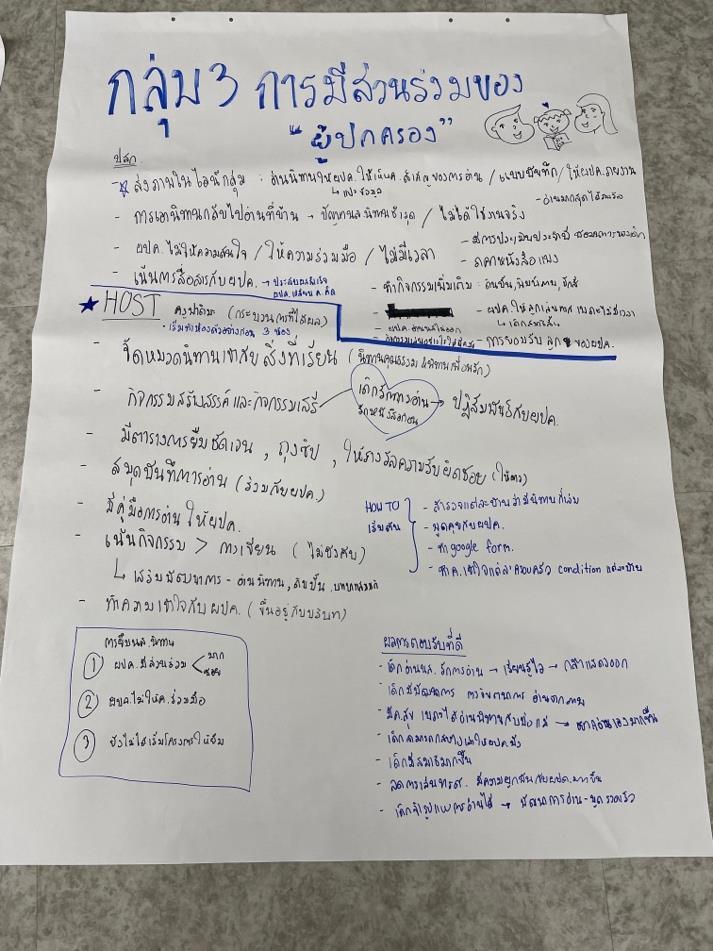 กลุ่ม 3 การมีส่วนร่วมของ
"ผู้ปกครอง"
ปลูก
- ส่งภาพในไลน์กลุ่ม : อ่านนิทานให้ผปค. ให้เห็นค.สำคัญของการอ่าน / แบบบันทึก / ให้ผปค. รายงาน
- การเอานิทานกลับไปอ่านที่บ้าน → ปัญหานส.นิทานชำรุด / ไม่ได้ใช้งานจริง
- ผปค. ไม่ให้ความสนใจ / ให้ความร่วมมือ / ไม่มีเวลา
- เน้นการสื่อสารกับผปค.
- ราคาหนังสือแพง
- ทำกิจกรรมเพิ่มเติม :
- ผปค. ให้ลูกเล่น เพราะไม่มีเวลา
- ผปค. อ่านไม่ออก
- การยอมรับ ลูก ของผปค.
★ HOST (กระบวนการที่ได้ผล)
• เริ่มทำห้องตัวอย่างก่อน 3 ห้อง
- จัดหมวดนิทานเข้ากับสิ่งที่เรียน (นิทานคุณธรรม
- กิจกรรมสร้างสรรค์ และกิจกรรมเสรี
เด็กรักการอ่าน
→ ปฏิสัมพันธ์กับผปค.
- มีตารางการยืมชัดเจน , ถุงซิป , ให้รางวัลความรับผิดชอบ (ให้ดาว)
- สมุดบันทึกการอ่าน (ร่วมกับผปค.)
- มีคู่มือการอ่าน ให้ผปค.
- เน้นกิจกรรม > การเขียน (ไม่บังคับ)
↳ ได้ร่วมพัฒนาการ - อ่านนิทาน, ดินปั้น,
- ทำความเข้าใจกับผปค. (ขึ้นอยู่กับบริบท)
HOW TO
เริ่มต้น
- สำรวจแต่ละบ้านว่ามีนิทานกี่เล่ม
- พูดคุยกับผปค.
- ทำ google form.
- ทำค.เข้าใจแต่ละครอบครัว condition แต่ละบ้าน
การยืมนส.นิทาน
① ผปค. มีส่วนร่วม < มาก
น้อย
② ผปค. ไม่ให้ค.ร่วมมือ
③ ยังไม่ได้เริ่มโครงการให้ยืม
ผลการตอบรับที่ดี
- เด็กอ่านนส. รักการอ่าน → เรียนรู้ไว → กล้าแสดงออก
- เด็กมีพัฒนาการ
- มีค.สุข เพราะได้อ่านนิทานกับพ่อแม่
- เด็กสามารถ เล่าให้ผปค. ฟัง
- เด็กมีสมาธิมากขึ้น
- ลดการเล่นทรศ. มีความผูกพันกับผปค. มากขึ้น
- เด็ก รูปแบบการอ่านได้ → พัฒนาการอ่าน-พูด รวดเร็ว